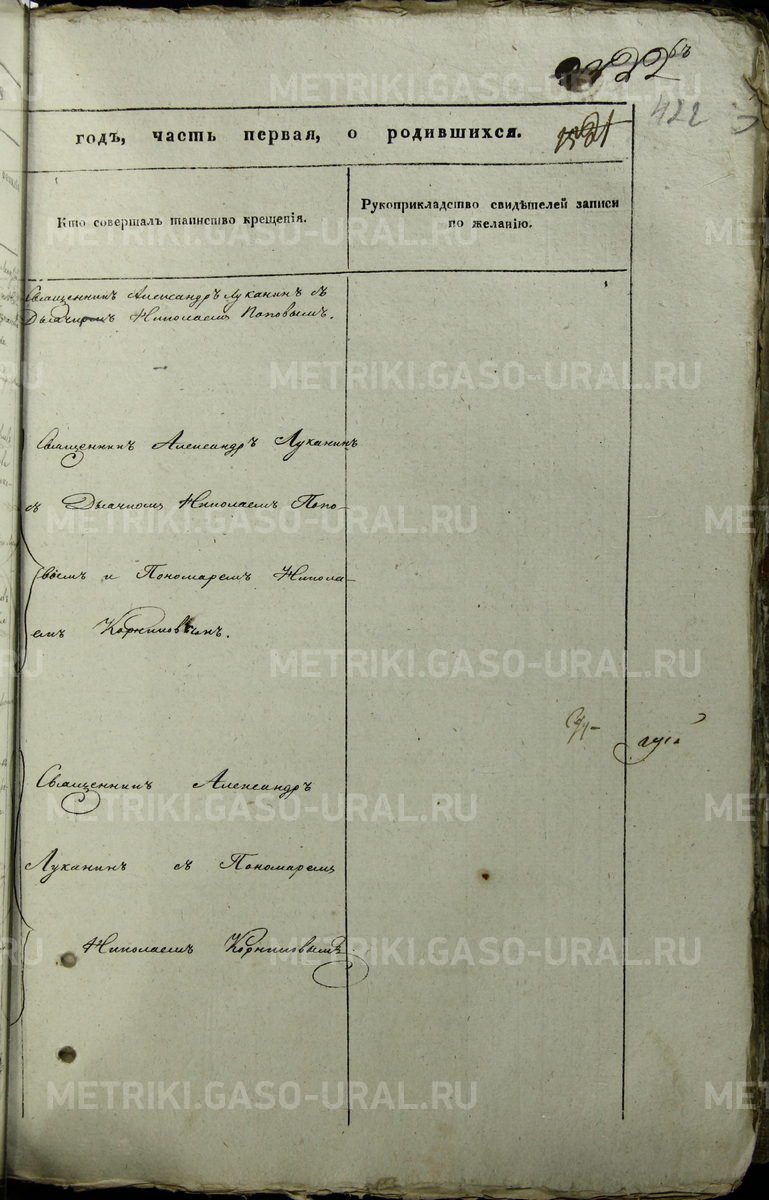 422
годъ, часть первая, о родившихся.
Кто совершалъ таинство крещенія.
Рукоприкладство свидѣтелей записи
по желанію.
Священникъ Александръ Луканинъ съ
Дьячкомъ Николаемъ Поповымъ.
Священникъ Александръ Луканинъ
съ Дьячкомъ Николаемъ Попо-
вымъ и Пономаремъ Никола-
емъ
Священникъ Александръ
Луканинъ съ Пономаремъ
Николаемъ
METRIKI.GASO-URAL.RU